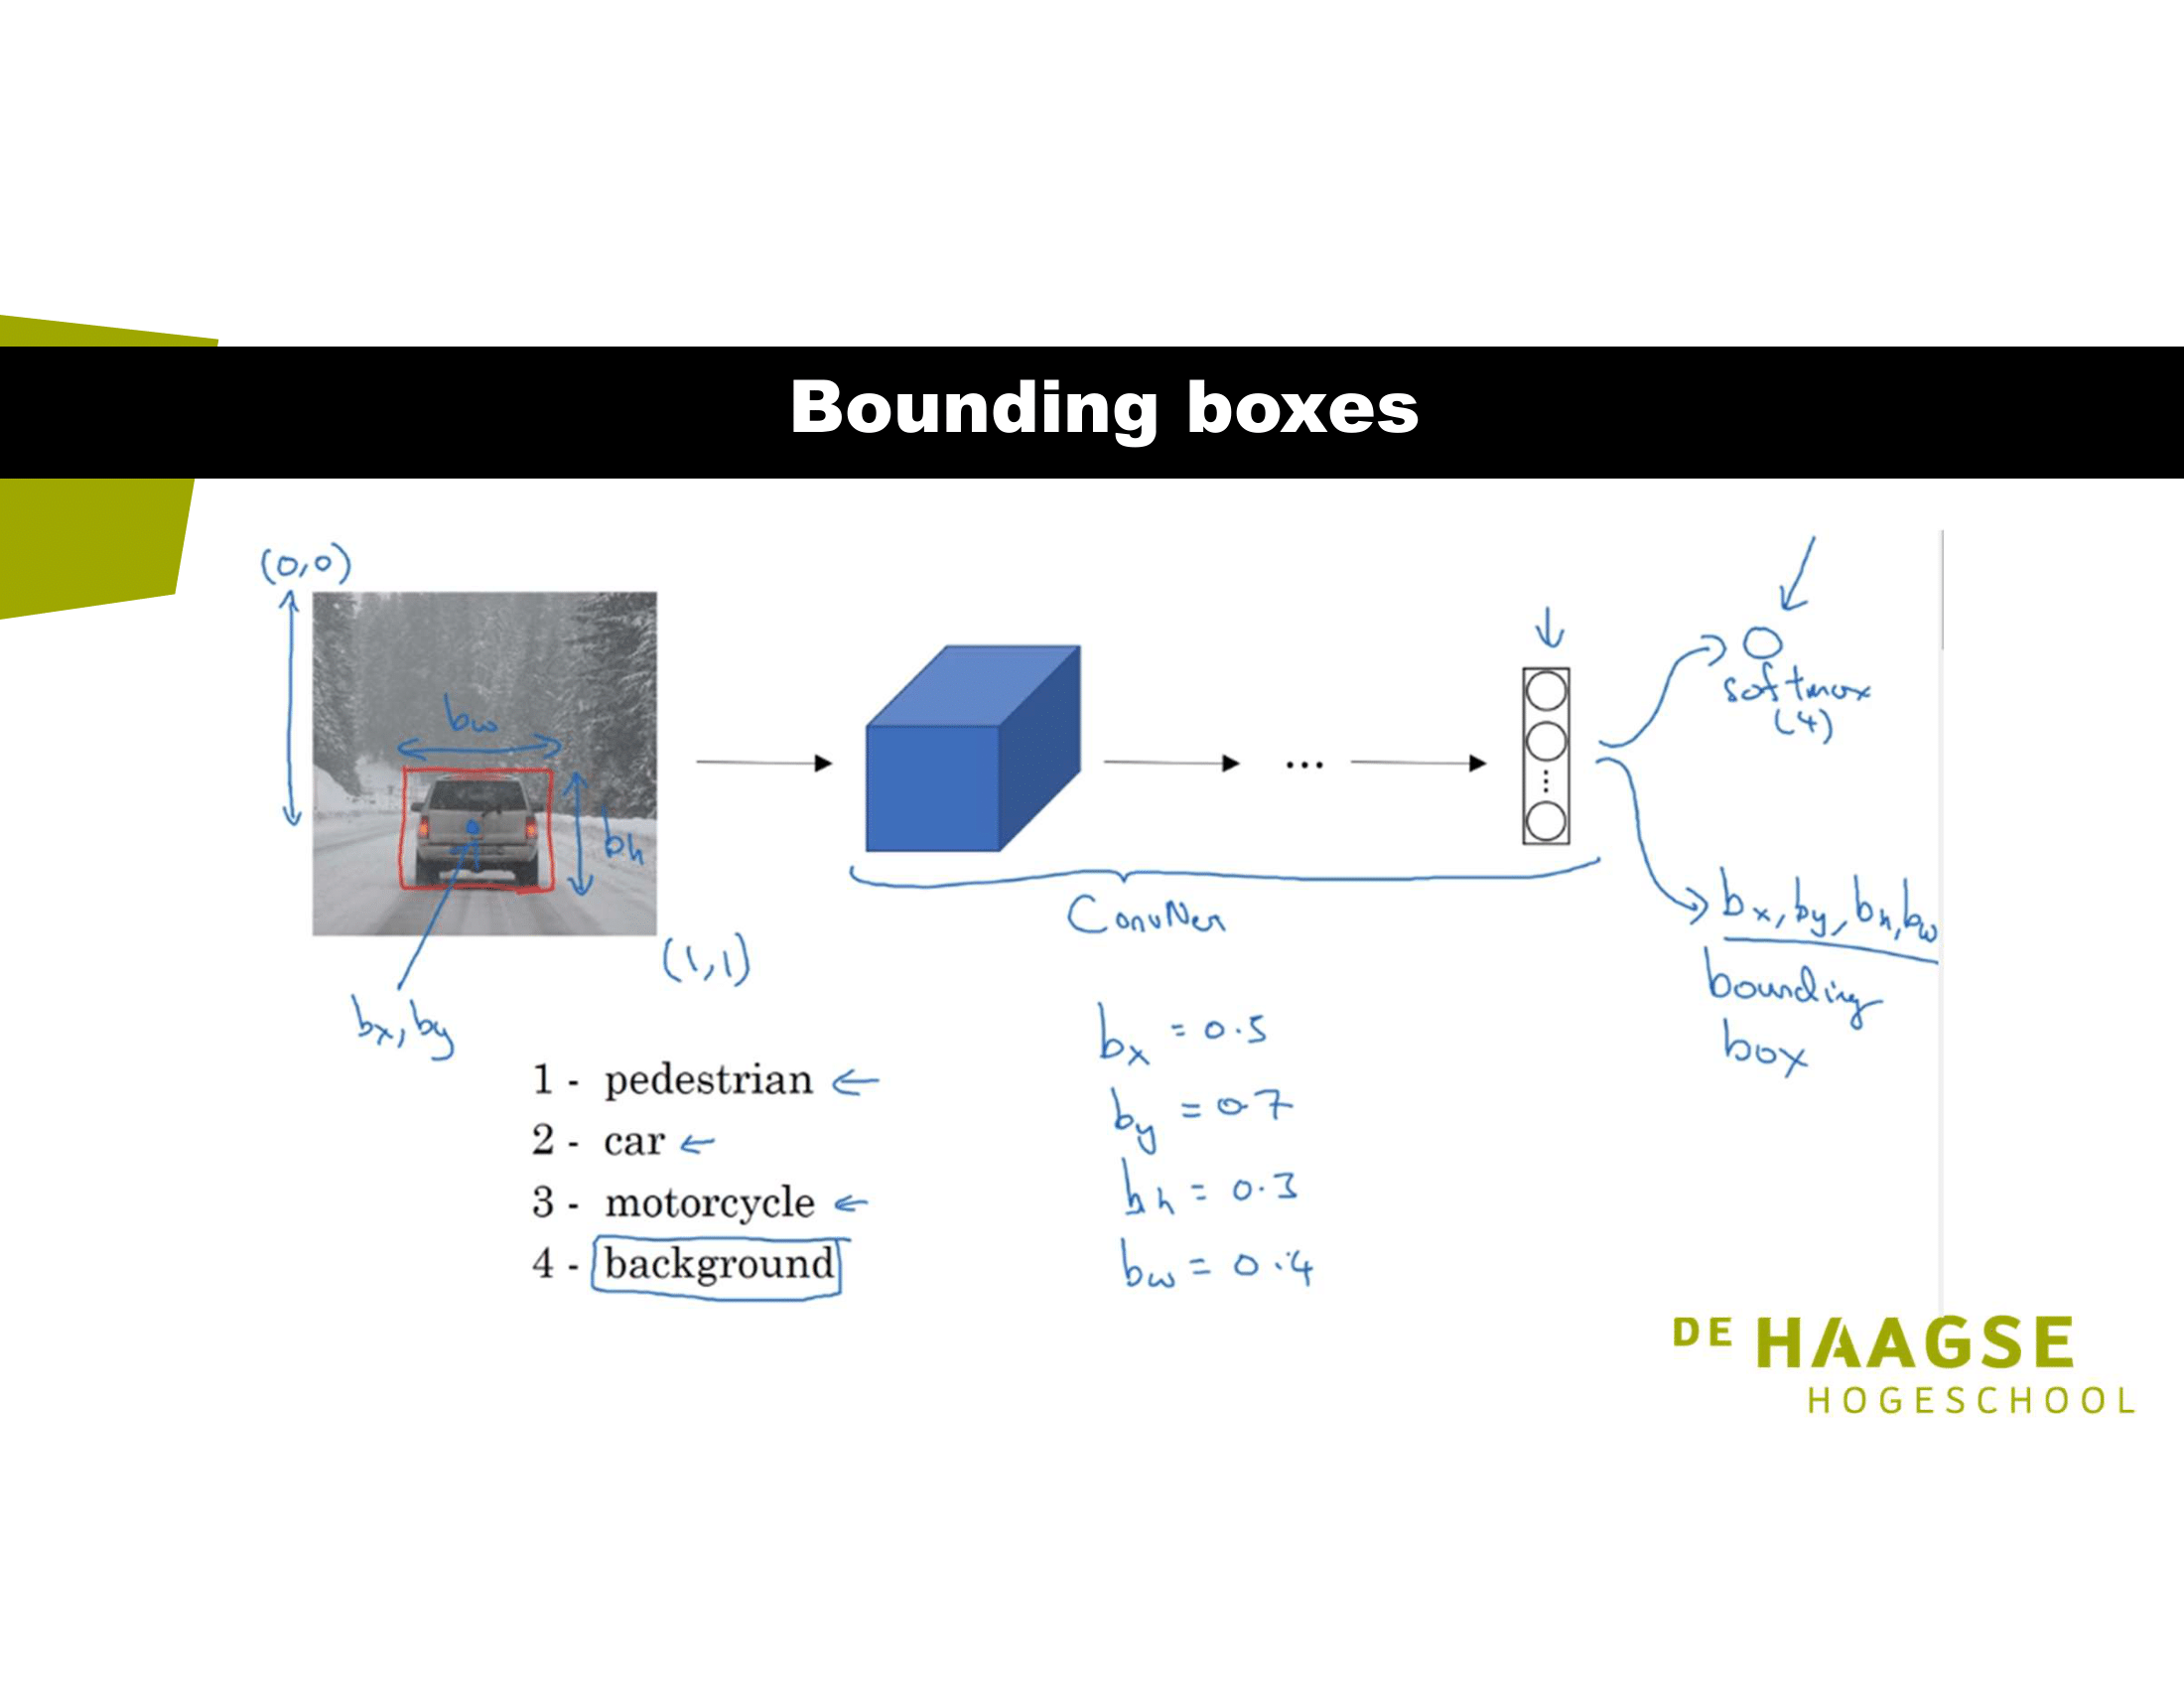 Bounding boxes
(0,0)
bw
bh
(1,1)
bx, by
ConvNet
softmax
(4)
bx, by, bh, bw
bounding
box
1 - pedestrian
2 - car
3 - motorcycle
4 - background
bx = 0.5
by = 0.7
bh = 0.3
bw = 0.4
DE HAAGSE
HOGESCHOOL